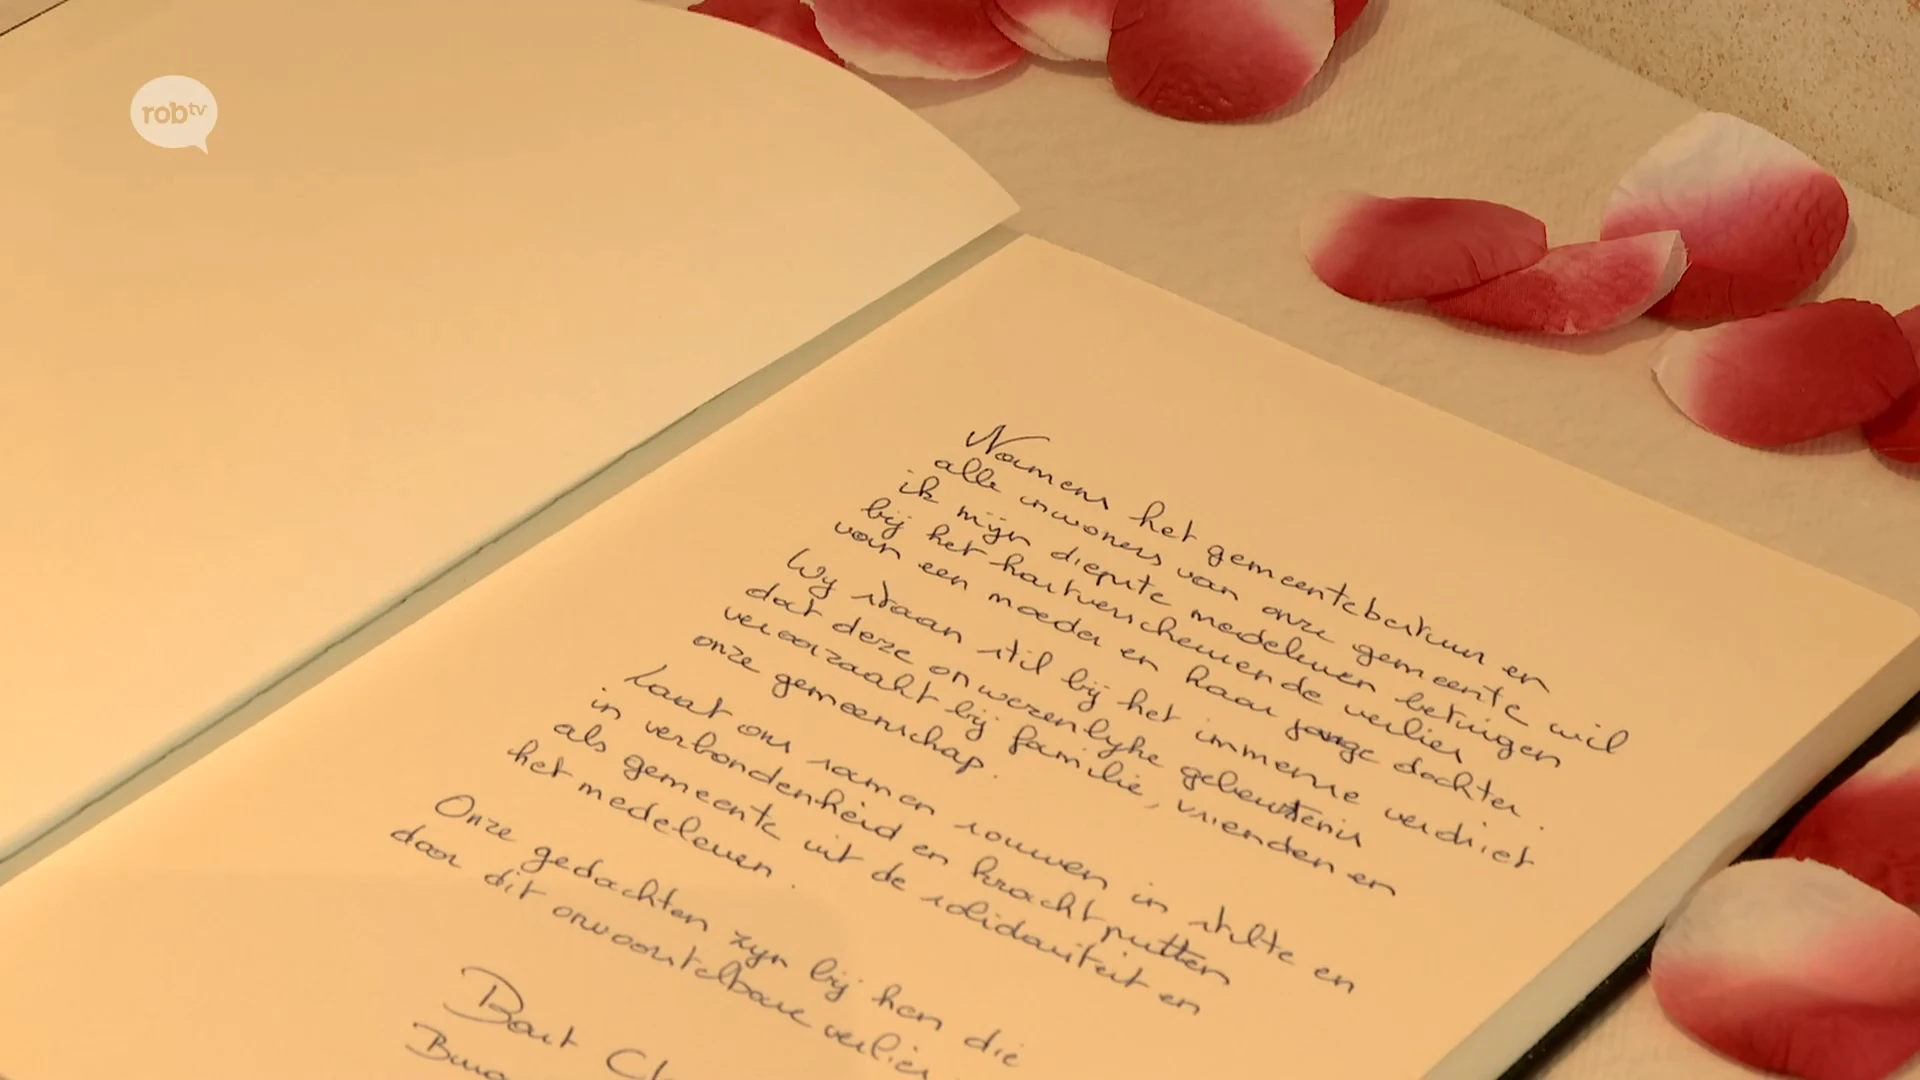 rob tv
Namens het gemeentebestuur en
alle inwoners van onze gemeente wil
ik mijn diepste medeleven betuigen
bij het hartverscheurende verlies
van een moeder en haar jonge dochter.
Wij staan stil bij het immense verdriet
dat deze onwezenlijke gebeurtenis
veroorzaakt bij familie, vrienden en
onze gemeenschap.
Laat ons samen rouwen in stilte en
in verbondenheid en kracht putten
als gemeente uit de solidariteit en
het medeleven.
Onze gedachten zijn bij hen die
door dit onvoorstelbare verlies
Bart